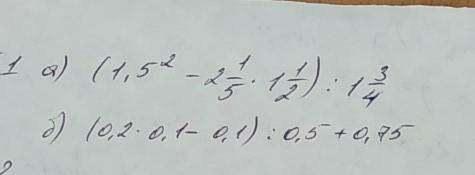 1 а) (1,5² - 2 1/5 · 1 1/2) : 1 3/4
б) (0,2 · 0,1 - 0,1) : 0,5 + 0,75